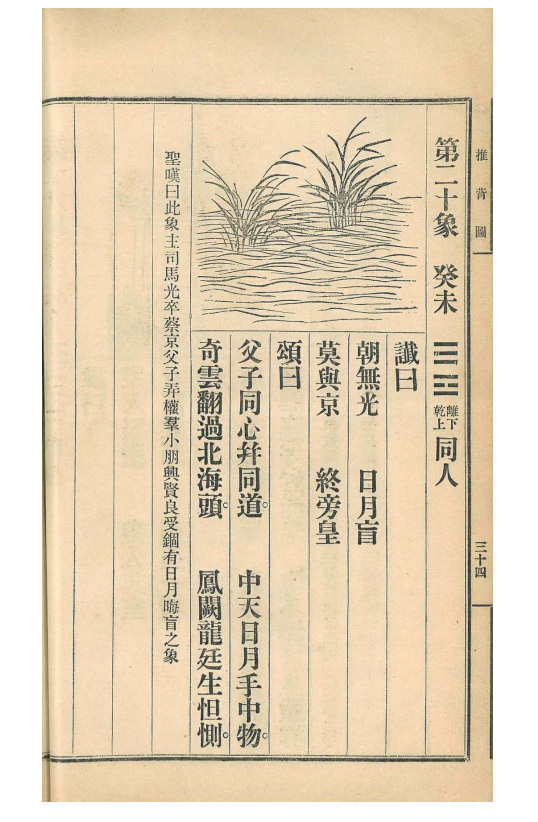 推背圖
三十四
第二十象 癸未 離下乾上 同人
讖曰
朝無光 日月盲
莫與京 終旁皇
頌曰
父子同心幷同道。 中天日月手中物。
奇雲翻過北海頭。 鳳闕龍廷生怛惻。
聖嘆曰此象主司馬光卒蔡京父子弄權羣小朋興賢良受錮有日月晦盲之象